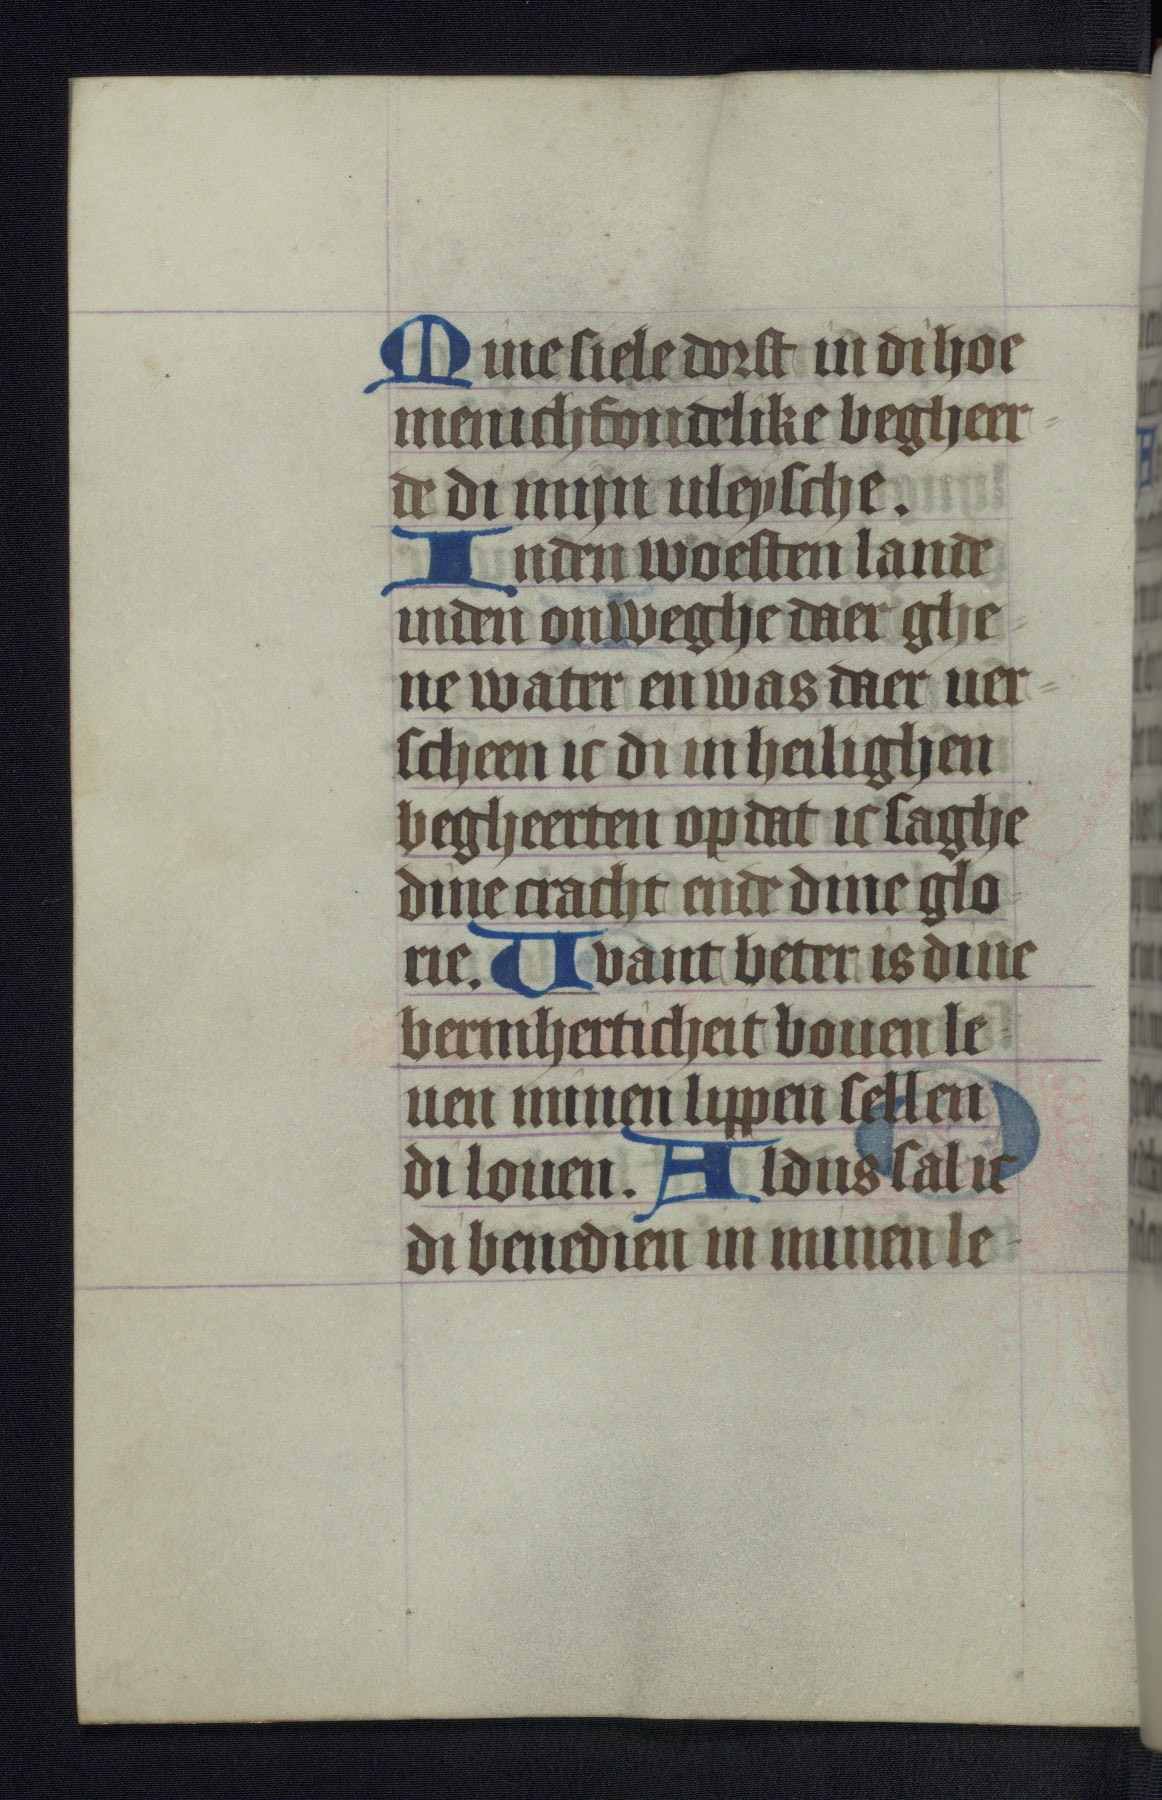 Mine siele dorst in di hoe
menichfoudelike begheer-
de di mijn uleysche.
Inden woesten lande
inden onweghe daer ghe-
ne water en was daer uer-
scheen ic di in heilighen
begheerten op dat ic saghe
dine cracht ende dine glo-
rie. Want beter is dine
bermherticheit bouen le-
uen minen lippen sellen
di louen. Aldus sal ic
di benedien in minen le-